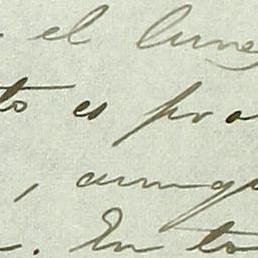 el lunes
to es pro
, aunqu
. En to